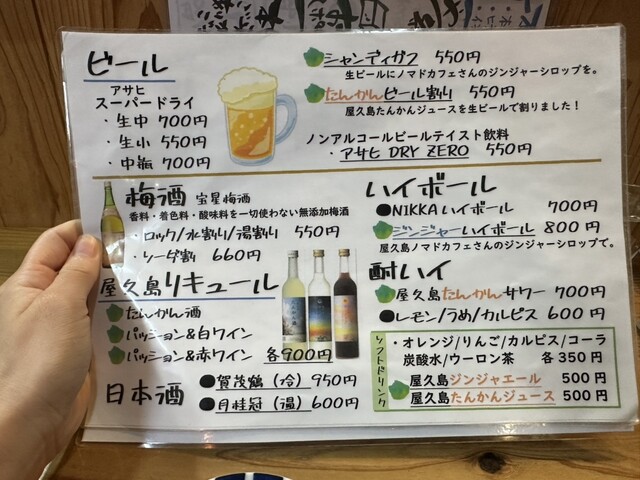 ビール
アサヒ
スーパードライ
・生中 700円
・生小 550円
・中瓶 700円
シャンディガフ 550円
生ビールにノマドカフェさんのジンジャーシロップを。
たんかんビール割り 550円
屋久島たんかんジュースを生ビールで割りました！
ノンアルコールビールテイスト飲料
・アサヒ DRY ZERO 550円
梅酒 宝星梅酒
香料・着色料・酸味料を一切使わない無添加梅酒
・ロック/水割り/湯割り 550円
・ソーダ割 660円
屋久島リキュール
たんかん酒
パッション&白ワイン
パッション&赤ワイン 各900円
日本酒
●賀茂鶴（冷）950円
●月桂冠（温）600円
ハイボール
●NIKKAハイボール 700円
ジンジャーハイボール 800円
屋久島ノマドカフェさんのジンジャーシロップで。
酎ハイ
屋久島たんかんサワー 700円
●レモン/うめ/カルピス 600円
ソフトドリンク
・オレンジ/りんご/カルピス/コーラ
炭酸水/ウーロン茶 各350円
屋久島ジンジャエール 500円
屋久島たんかんジュース 500円